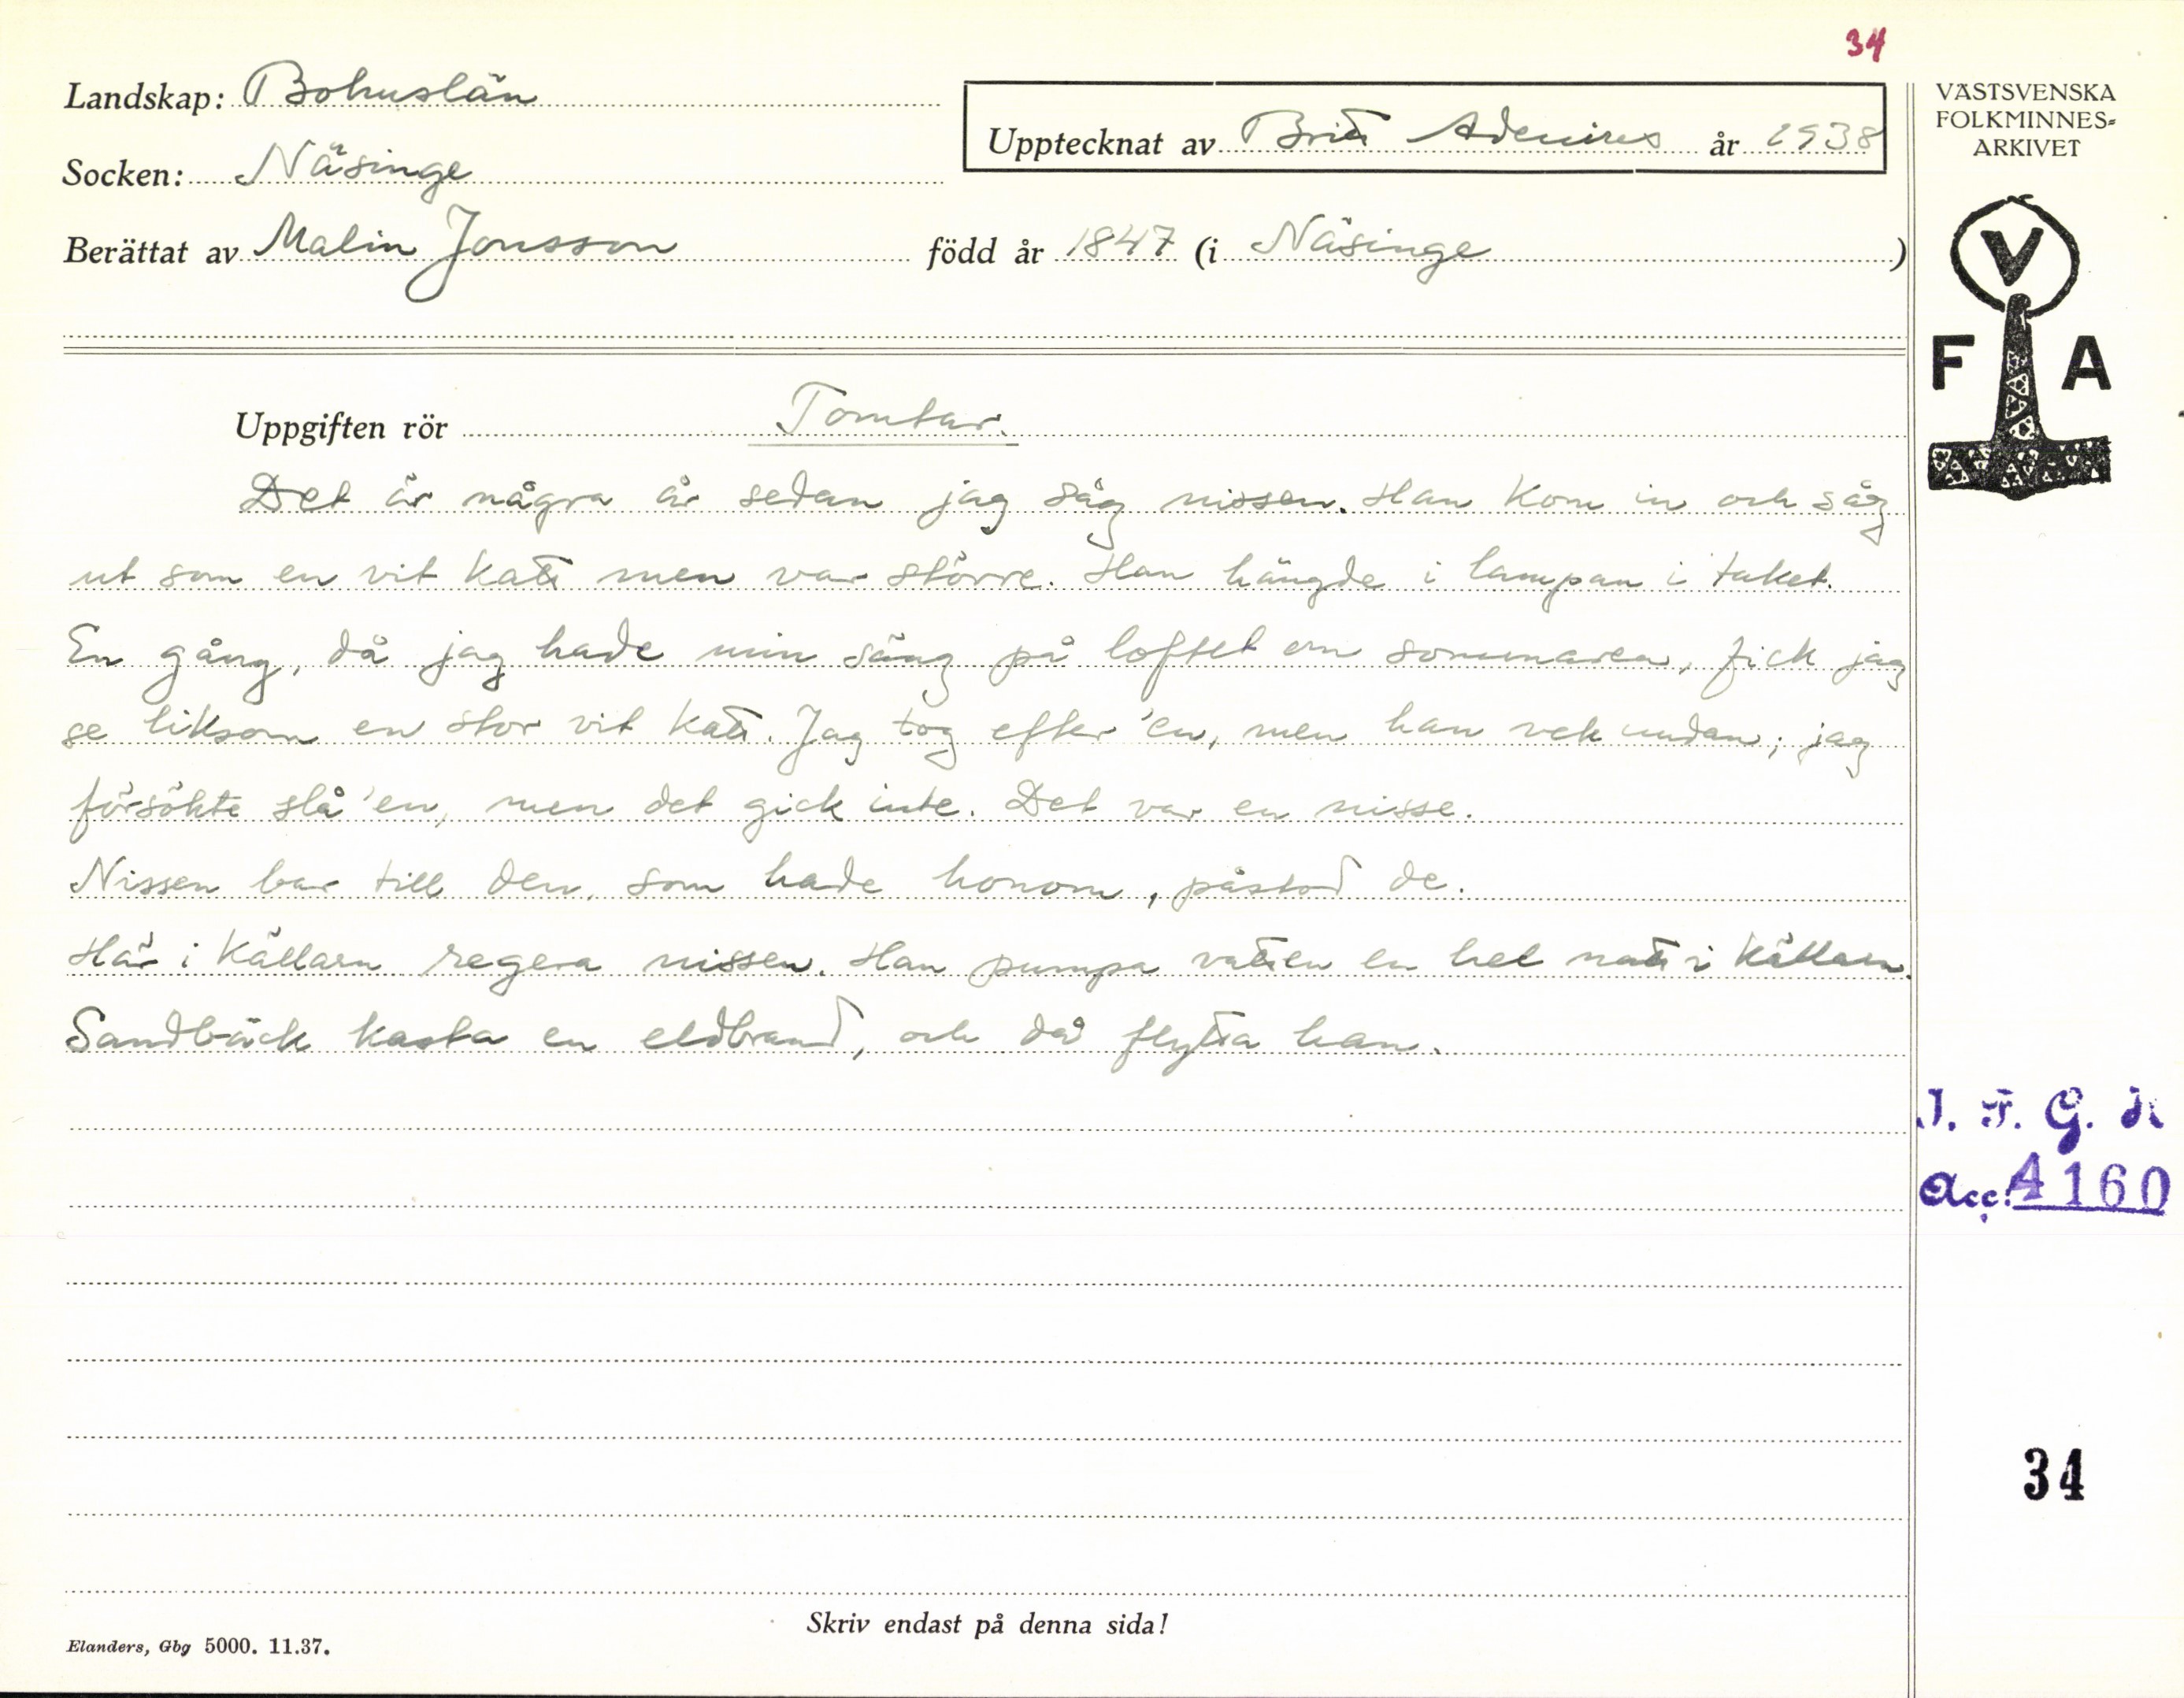 34
Landskap: Bohuslän
Upptecknat av Britt Adenius år 1938
Socken: Näsinge
Berättat av Malin Jonsson född år 1847 (i Näsinge)
VÄSTSVENSKA
FOLKMINNES-
ARKIVET
V
F A
Uppgiften rör Tomtar.
Det är några år sedan jag såg nissen. Han kom in och såg
ut som en vit katt men var större. Han hängde i lampan i taket.
En gång, då jag hade min säng på loftet om sommaren, fick jag
se liksom en stor vit katt. Jag tog efter 'en, men han vek undan; jag
försökte slå 'en, men det gick inte. Det var en nisse.
Nissen bar till den, som hade honom, påstod de.
Här i källarn regera nissen. Han pumpa vatten en hel natt i källarn.
Sandbäck kasta en eldbrand, och då flytta han.
I. F. G. H
Acc. 4160
34
Skriv endast på denna sida!
Elanders, Gbg 5000. 11.37.